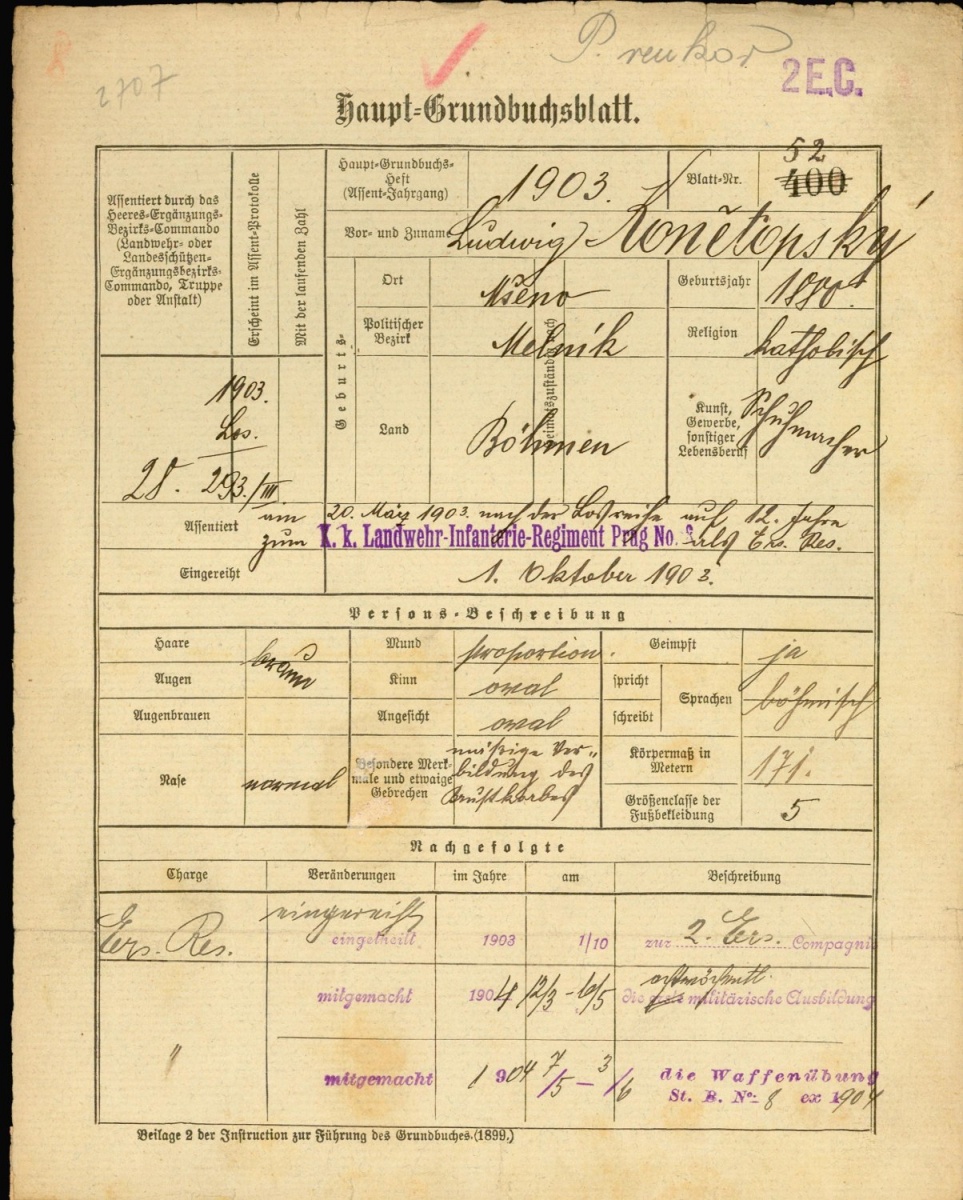 8
2707
2 E.C.
Haupt-Grundbuchsblatt.
Assentiert durch das
Heeres-Ergänzungs-
Bezirks-Commando
(Landwehr- oder
Landesschützen-
Ergänzungsbezirks-
Commando, Truppe
oder Anstalt)
Erscheint im Assent-Protokolle
Mit der laufenden Zahl
Haupt-Grundbuchs-
Heft
(Assent-Jahrgang)
1903.
Blatt-Nr.
52
400
Vor- und Zuname
Ludwig Konětopský
Geburts-
Ort
Mšeno
Geburtsjahr
1880.
Politischer
Bezirk
Melnik
Religion
katholisch
Land
Böhmen
Heimatszuständig nach
Kunst,
Gewerbe,
sonstiger
Lebensberuf
Schuhmacher
1903.
Los.
28. 293./III.
Assentiert
am 20. März 1903. nach der Losreihe auf 12. Jahre
zum K. k. Landwehr-Infanterie-Regiment Prag No. als Ers. Res.
Eingereiht
1. Oktober 1903.
Persons-Beschreibung
Haare
braun
Augen
Augenbrauen
Nase
normal
Mund
proportion.
Kinn
oval
Angesicht
oval
Besondere Merk-
male und etwaige
Gebrechen
mäßige Ver-
bildung des
Brustkorbes
Geimpft
ja
spricht
schreibt
Sprachen
böhmisch
Körpermaß in
Metern
171.
Größenclasse der
Fußbekleidung
5
Nachgefolgte
Charge Veränderungen im Jahre am Beschreibung
eingereiht
Ers. Res. eingetheilt 1903 1/10 zur 2. Ers. Compagnie
achtwöchentl.
mitgemacht 1904 12/3 - 6/5 die erste militärische Ausbildung
" mitgemacht 1904 7/5 - 3/6 die Waffenübung
St. B. No: 8 ex 1904
Beilage 2 der Instruction zur Führung des Grundbuches.(1899.)